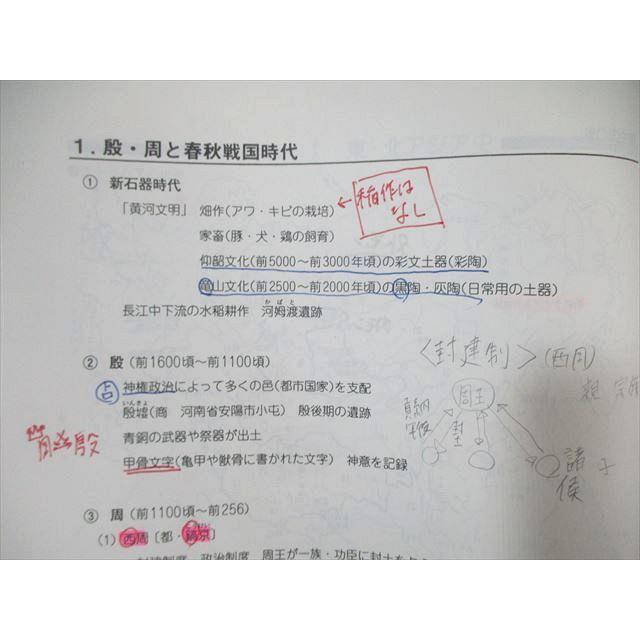 1. 殷・周と春秋戦国時代
① 新石器時代
「黄河文明」 畑作(アワ・キビの栽培)
←稲作は
なし
家畜(豚・犬・鶏の飼育)
仰韶文化(前5000～前3000年頃)の彩文土器(彩陶)
竜山文化(前2500～前2000年頃)の黒陶・灰陶(日常用の土器)
かぼと
長江中下流の水稲耕作 河姆渡遺跡
② 殷(前1600頃～前1100頃)
占
神権政治によって多くの邑(都市国家)を支配
いんきょ
殷墟(商 河南省安陽市小屯) 殷後期の遺跡
青銅の武器や祭器が出土
甲骨文字(亀甲や獣骨に書かれた文字) 神意を記録
<封建制>(西周)
周王
貢納
軍役
封土
諸
侯
③ 周(前1100頃～前256)
(1) 西周〔都・鎬京〕
封建制度 政治制度 周王が一族・功臣に封土を